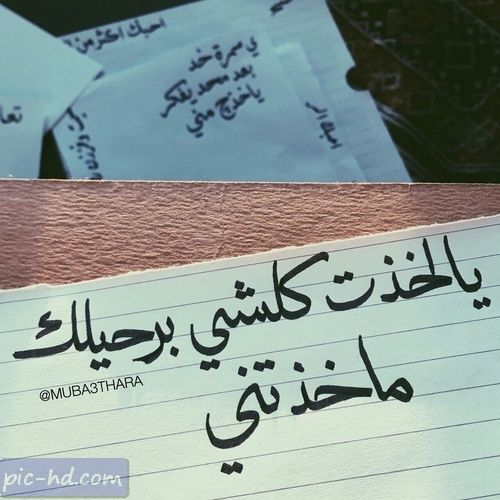 احبك اكثر من
يي سمرة خد
بعد محد يفكر
ياخذج مني
تعا
يالخذت كلشي برحيلك
ماخذتني
@MUBA3THARA
pic-hd.com